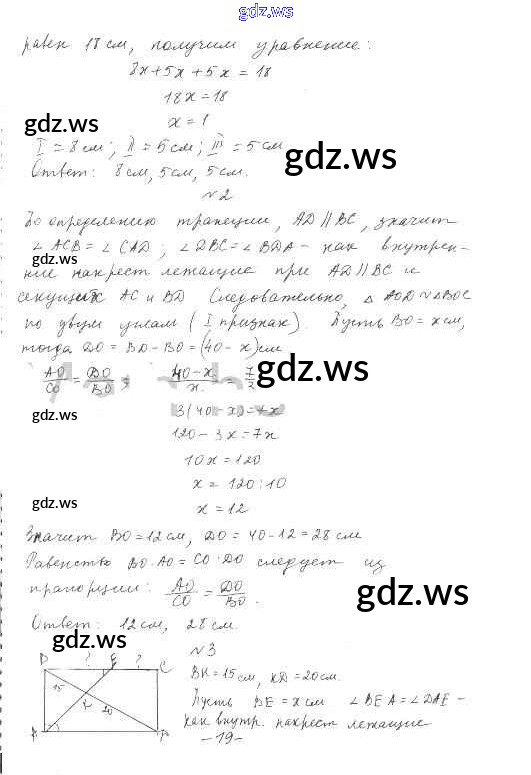 gdz.ws
равен 18 см, получим уравнение:
8x+5x+5x=18
18x=18
gdz.ws
x=1
I=8см; II=5см; III=5см
gdz.ws
Ответ: 8см, 5см, 5см.
№2
По определению трапеции, AD||BC, значит
∠ACB=∠CAD; ∠DBC=∠BDA - как внутрен-
gdz.ws
ние накрест лежащие при AD||BC и
секущих AC и BD Следовательно, △AOD∾△BOC
по двум углам (I признак). Пусть BO=xсм,
тогда DO=BD-BO=(40-x)см
gdz.ws
AO/CO=DO/BO; 40-x/x=7/3
gdz.ws
3(40-x)=7x
120-3x=7x
10x=120
x=120:10
gdz.ws
x=12
Значит BO=12см, DO=40-12=28см
Равенство BO·AO=CO·DO следует из
пропорции: AO/CO=DO/BO.
gdz.ws
Ответ: 12см, 28см.
gdz.ws
№3
D ? E ? C
BK=15см, KD=20см.
15 K 20
Пусть BE=xсм ∠BEA=∠DAE-
как внутр. накрест лежащие
-19-